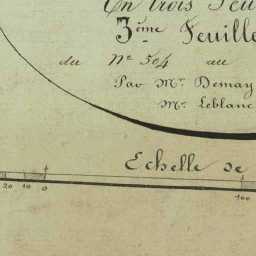 En trois Feu
3ème Feuille
du N° 504 au
Par Mr. Demay
Mr. Leblanc
Echelle de
20 10 0 100